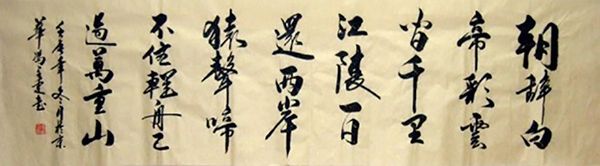 朝辞白
帝彩雲
间千里
江陵一日
還两岸
猿聲啼
不住輕舟已
過萬重山
年冬月於京
華書